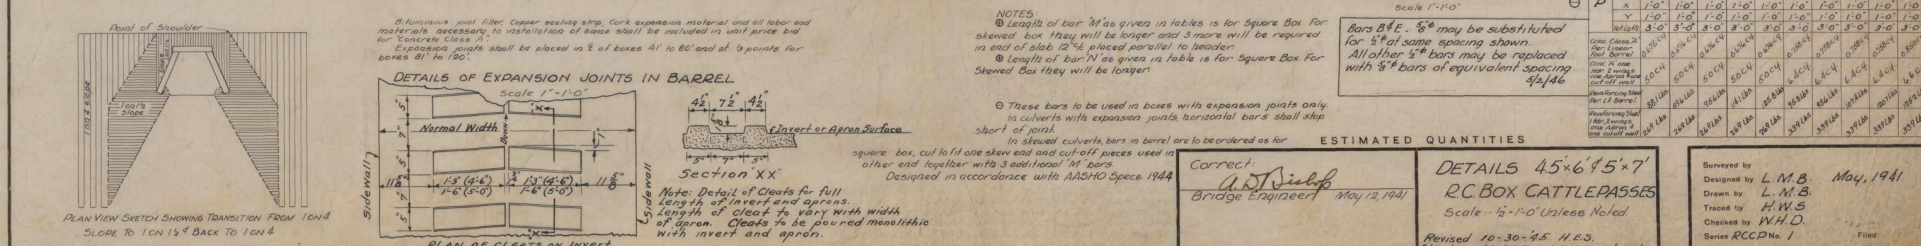 Point of Shoulder
1 on 4 slope
1 on 1½
Slope
PLAN VIEW SKETCH SHOWING TRANSITION FROM 1 ON 4
SLOPE TO 1 ON 1½ & BACK TO 1 ON 4
Bituminous joint filler, Copper sealing strip, Cork expansion material and all labor and
materials necessary to installation of same shall be included in unit price bid
for "Concrete Class A".
Expansion joints shall be placed in ¢ of boxes 41' to 80' and at ⅓ points for
boxes 81' to 120'.
DETAILS OF EXPANSION JOINTS IN BARREL
Scale 1"=1'-0"
Normal Width
Down
Sidewall
Sidewall
1'-3" (4'-6")
1'-6" (5'-0")
1'-3" (4'-6")
1'-6" (5'-0")
PLAN OF CLEATS ON INVERT
4½" 7½" 4½"
Invert or Apron Surface
5" 7" 5"
Section "XX"
Note: Detail of Cleats for full
Length of invert and aprons.
Length of cleat to vary with width
of apron. Cleats to be poured monolithic
with invert and apron.
NOTES:
⊕ Length of bar "M" as given in tables is for Square Box. For
skewed box they will be longer and 3 more will be required
in end of slab 12" % placed parallel to header.
⊗ Length of bar "N" as given in table is for Square Box. For
Skewed Box they will be longer.
⊖ These bars to be used in boxes with expansion joints only.
In culverts with expansion joints, horizontal bars shall stop
short of joint.
In skewed culverts, bars in barrel are to be ordered as for
square box, cut to fit one skew end and cut-off pieces used in
other end together with 3 additional "M" bars.
Designed in accordance with AASHO Specs. 1944
Scale 1"=1'-0"
Bars B & E - ⅝"ϕ may be substituted
for ½"ϕ at same spacing shown.
All other ½"ϕ bars may be replaced
with ⅝"ϕ bars of equivalent spacing
5/2/46
ESTIMATED QUANTITIES
Correct:
A.D. Bishop
Bridge Engineer May 12, 1941
DETAILS 4.5'x6' & 5'x7'
R.C. BOX CATTLEPASSES
Scale - ½"=1'-0" Unless Noted
Revised 10-30-45 H.E.S.
P
X 1'-0" 1'-0" 1'-0" 1'-0" 1'-0" 1'-0" 1'-0" 1'-0" 1'-0"
Y 1'-0" 1'-0" 1'-0" 1'-0" 1'-0" 1'-0" 1'-0" 1'-0" 1'-0"
3'-0" 3'-0" 3'-0" 3'-0" 3'-0" 3'-0" 3'-0" 3'-0" 3'-0"
Conc. Class "A"
Per. Linear
Foot Barrel
Reinforcing Steel
Per. L.F. Barrel
Surveyed by
Designed by L.M.B. May, 1941
Drawn by L.M.B.
Traced by H.W.S
Checked by W.H.D.
Series RCCP No. 1 Filed